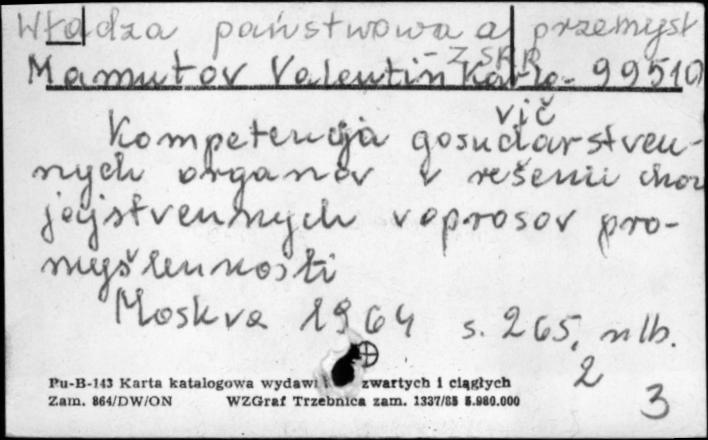 Władza państwowa a przemysł
- ZSRR
Mamutov Valentin Karlo- 99510
vič
Kompetencija gosudarstven-
nych organov v rešenii choz
jajstvennych voprosov pro-
myšlennosti
Moskva 1964 s. 265, nlb.
2
3
Pu-B-143 Karta katalogowa wydawn zwartych i ciągłych
Zam. 864/DW/ON WZGraf Trzebnica zam. 1337/85 5.980.000